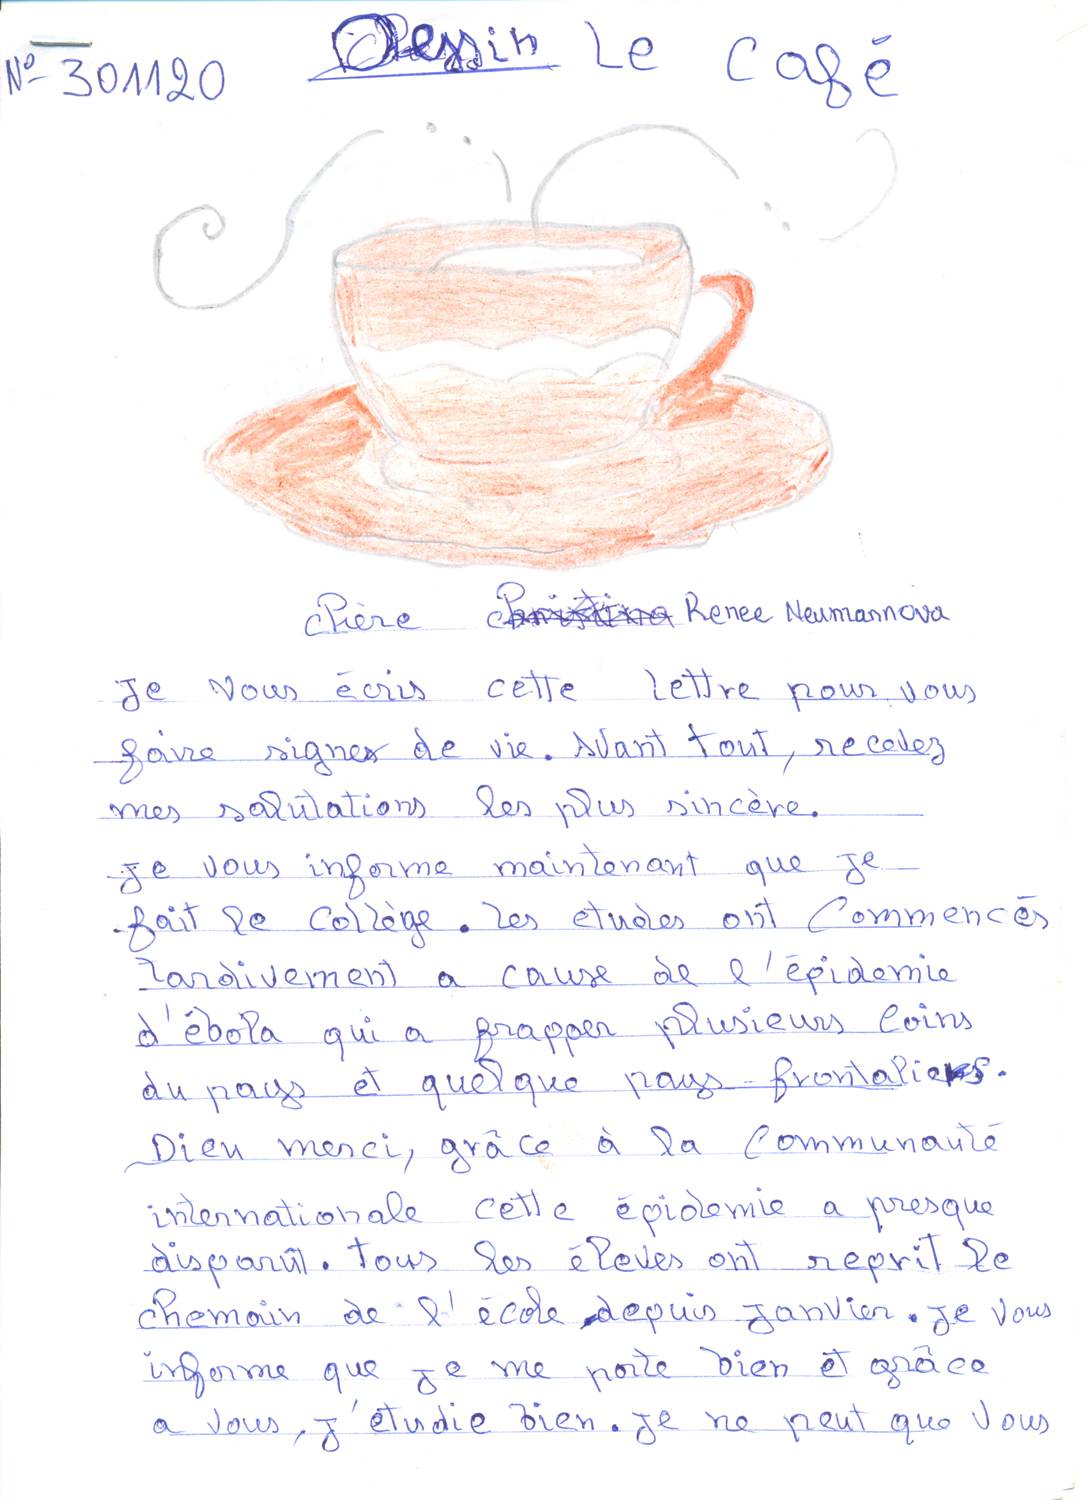 N° 301120
Dessin Le Café
chère Renee Neumannova
Je vous écris cette lettre pour vous
faire signe de vie. Avant tout, recevez
mes salutations les plus sincère.
Je vous informe maintenant que je
fait le Collège. Les etudes ont Commencés
tardivement a cause de l'épidemie
d'ébola qui a frapper plusieurs Coins
du pays et quelque pays frontaliers.
Dieu merci, grâce à la Communauté
internationale cette épidemie a presque
disparût. tous les élèves ont reprit le
chemain de l'école depuis Janvier. Je vous
informe que je me porte bien et grâce
a vous, j'étudie bien. Je ne peut que vous